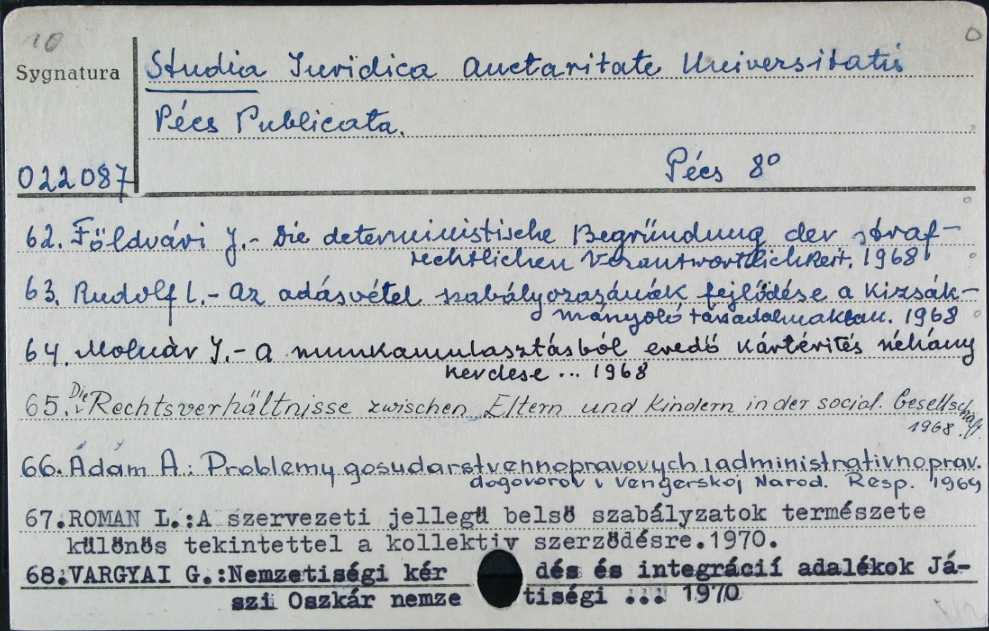 10
Sygnatura
Studia Iuridica auctaritate Universitatis
Pécs Publicata.
022087
Pécs 8°
62. Földvári J. - Die deterministische Begründung der straf-
rechtlichen Verantwortlichkeit. 1968
63. Rudolf L. - Az adásvétel szabályozásának fejlődése a kizsák-
mányoló társadalmakban. 1968
64. Molnár J. - a munkamulasztásból eredő kártérités néhány
kérdese ... 1968
65. Die Rechtsverhältnisse zwischen Eltern und Kindern in der social. Gesellschaft
1968.
66. Ádám A.: Problemy gosudarstvennopravovych i administrativnoprav.
dogovorov v Vengerskoj Narod. Resp. 1969
67. ROMAN L.: A szervezeti jellegü belsö szabályzatok természete
különös tekintettel a kollektiv szerzödésre. 1970.
68. VARGYAI G.: Nemzetiségi kér dés és integráció adalékok Já-
szi Oszkár nemze tiségi ... 1970